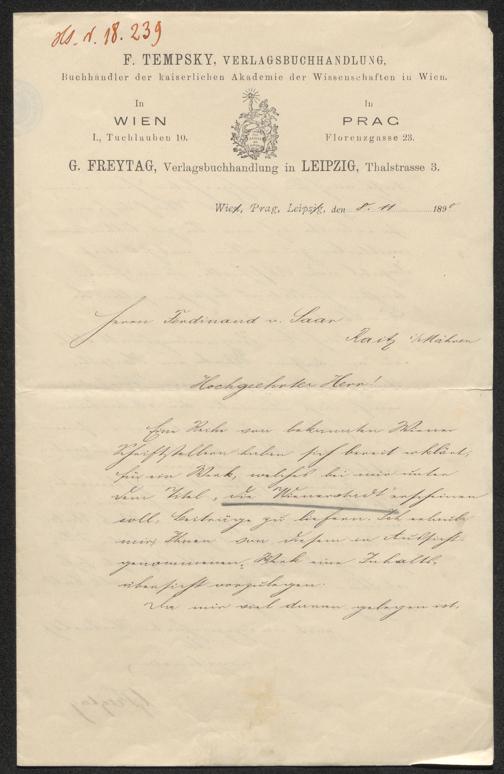 F. TEMPSKY, VERLAGSBUCHHANDLUNG,
Buchhändler der kaiserlichen Akademie der Wissenschaften in Wien.
In
WIEN
I., Tuchlauben 10.
In
PRAG
Florenzgasse 23.
G. FREYTAG, Verlagsbuchhandlung in LEIPZIG, Thalstrasse 3.
Wien, Prag, Leipzig, den 8. 11 189
Herrn Ferdinand v. Saar
Raitz i/Mähren
Hochgeehrter Herr!
Eine Reihe von bekannten Wiener
Schriftstellern haben sich bereit erklärt,
für ein Werk, welches bei mir unter
dem Titel „die Wienerstadt" erscheinen
soll, Beiträge zu liefern. Ich erlaube
mir, Ihnen von diesem in Aussicht
genommenen Werk eine Inhalts-
übersicht vorzulegen.
Da mir viel daran gelegen ist,